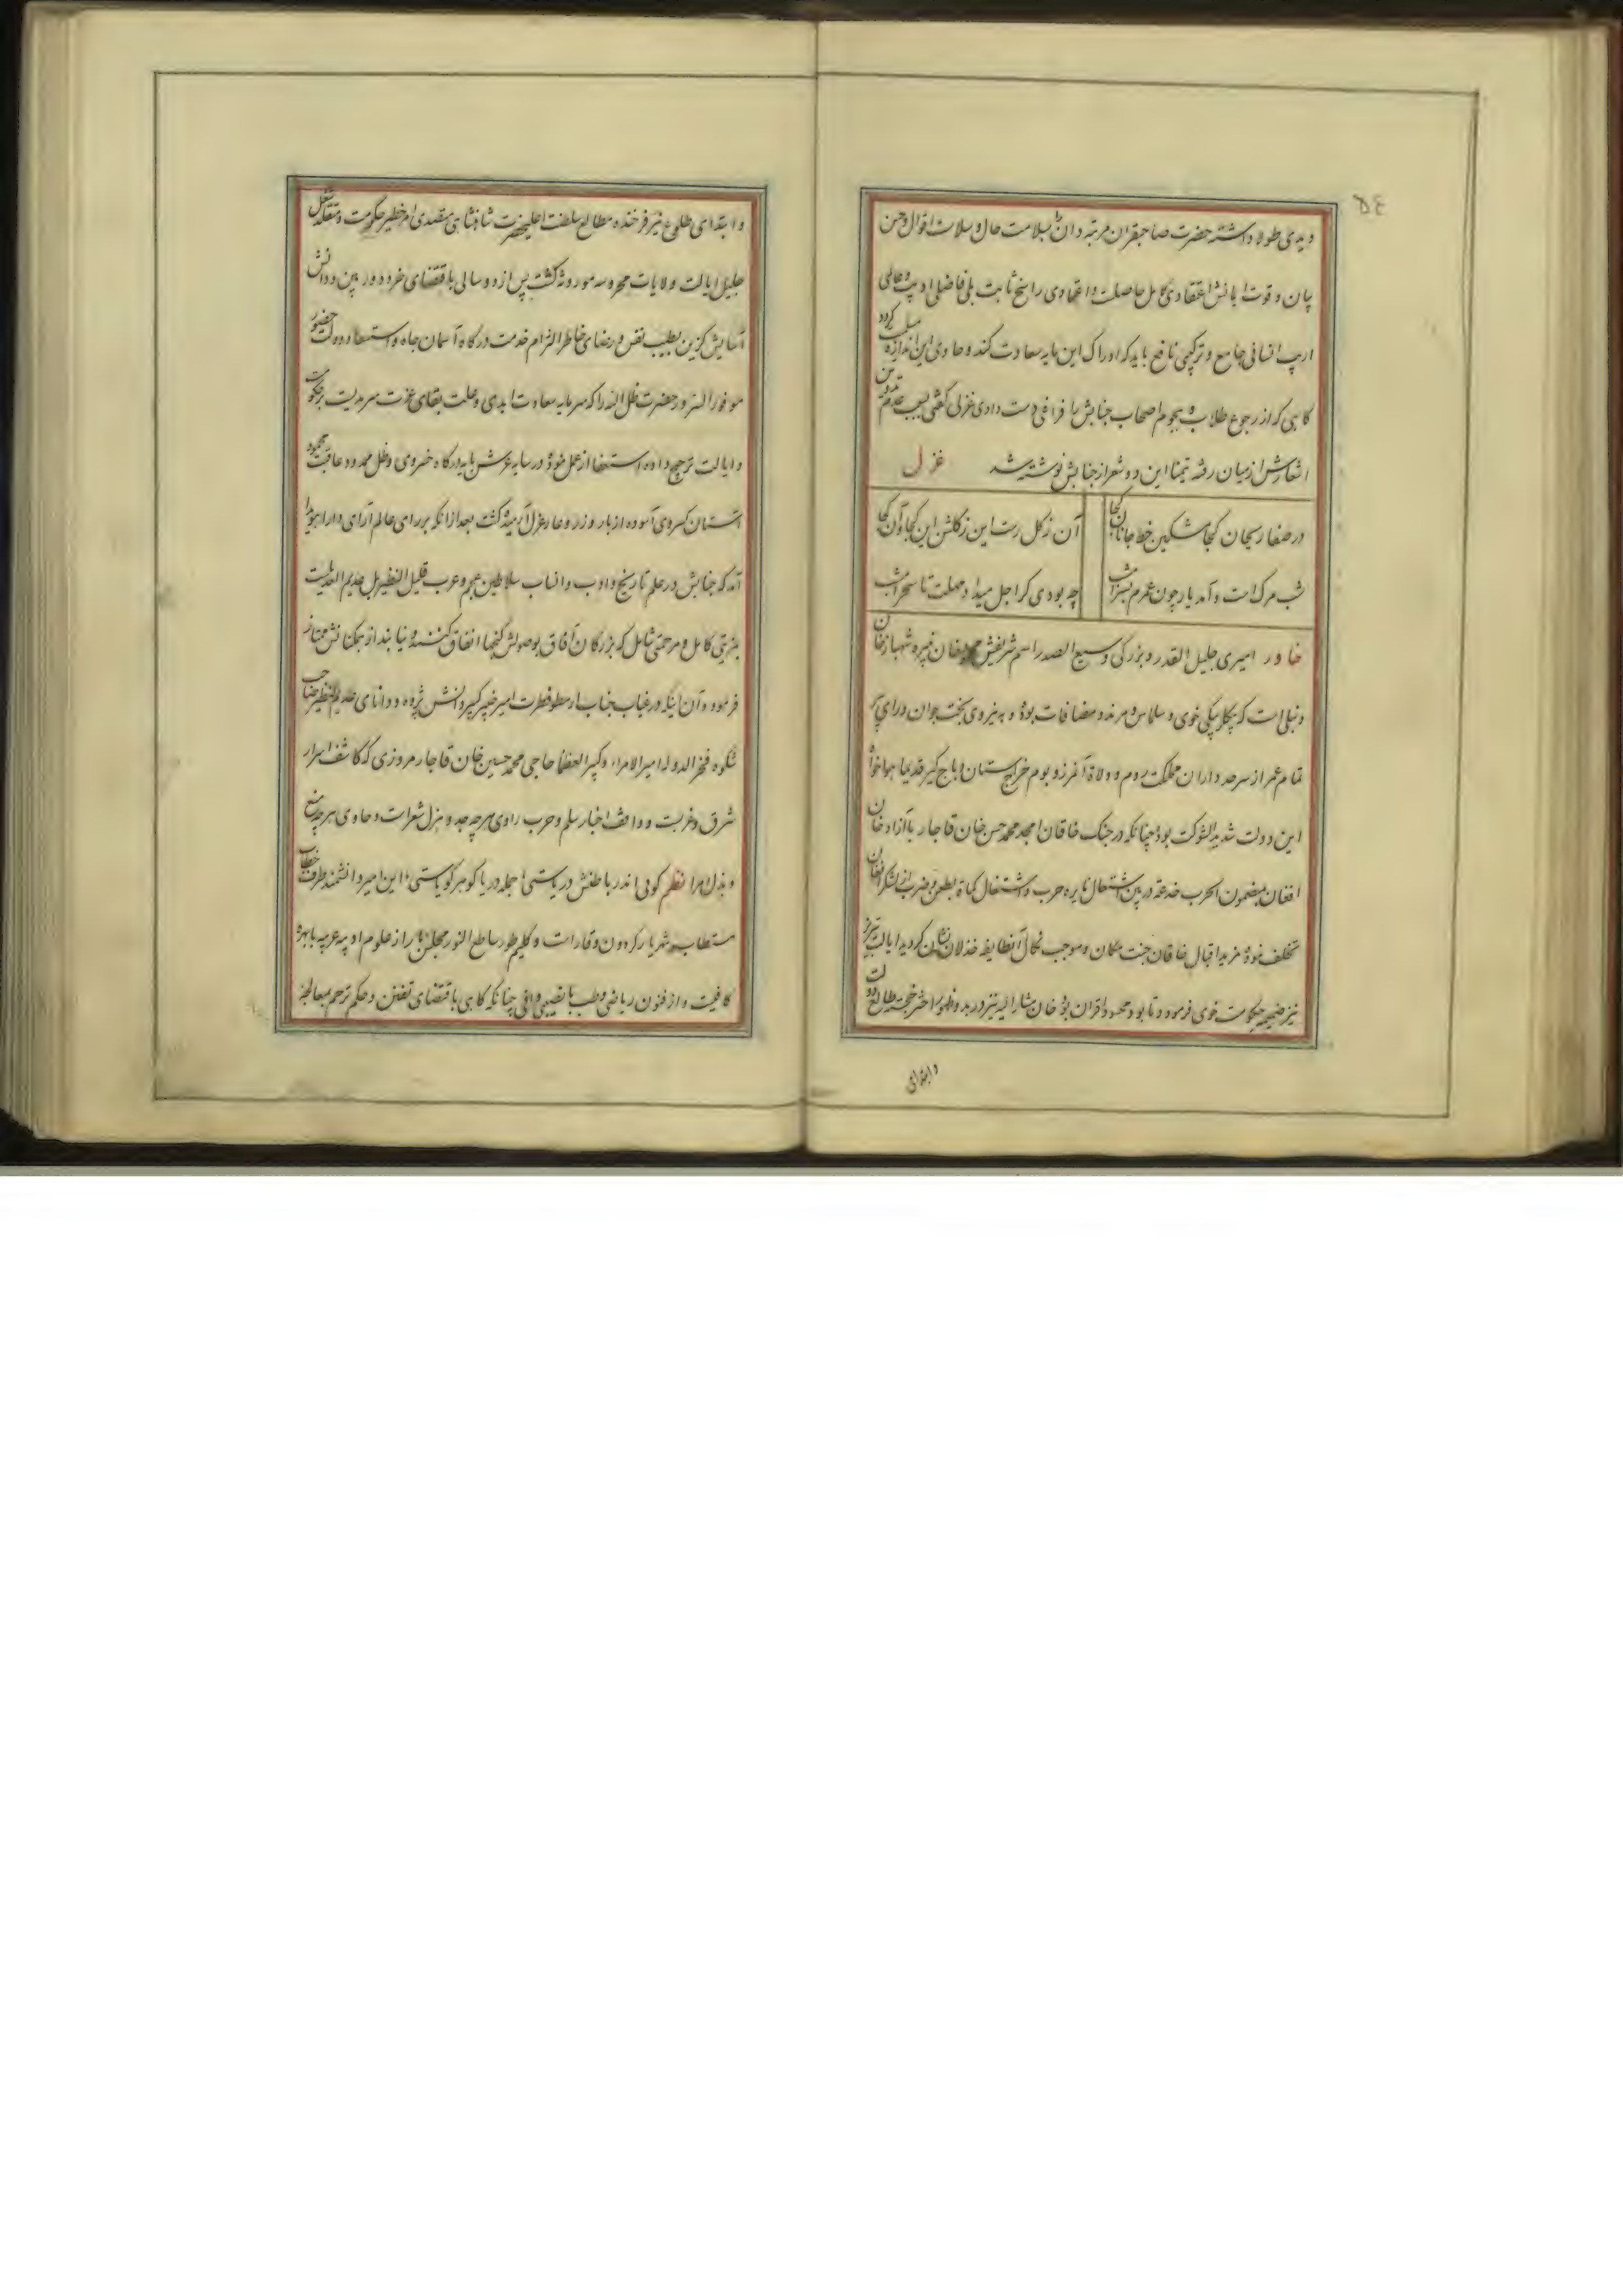 ۵۴
ویدی طولا داشته حضرت صاحبقران مرتبه دان را بسلامت حال و سلاست اقوال و حسن
بیان و قوت ایمانش اعتقادی کامل حاصلست و اعتمادی راسخ ثابت بلی فاضلی ادیب و عالمی
اریب انسانی جامع و ترکیبی نافع باید که ادراک این مایه سعادت کند و حاوی این اندازه
کاهی که از رجوع طلاب و هجوم اصحاب جنابش را فراغی دست دادی غزلی گفتی بسبب عدم تدوین
اشعارش از میان رفته تیمنا این دو شعر از جنابش نوشته شد غزل
در صفا ریحان کجا مشکین خط جانان کجا آن ز گل رست این ز گلشن این کجا و آن کجا
شب مرگست و آمد یار چون عمرم بسر امشب چه بودی گر اجل میداد مهلت تا سحر امشب
خاور امیری جلیل القدر و بزرگی وسیع الصدر اسم شریفش خان نبیره شهباز خان
دنبلی است که بیگلربیگی خوی و سلماس و مرند و مضافات بوده و به نیروی بخت جوان و رای پیر
تمام عمر از سرحد داران مملکت روم و ولاة آنمرز و بوم خراج ستان و باج گیر قدیما هواخواه
این دولت شدید الشوکت بوده چنانکه در جنگ خاقان امجد محمد حسن خان قاجار با آزاد خان
افغان بمضمون الحرب خدعة در بین اشتعال نایره حرب و اشتغال کماة بطعن و ضرب از لشکر افغان
تخلف نموده مزید اقبال خاقان جنت مکان و موجب نکال آنطایفه خذلان نشان گردید ایالت تبریز
نیز ضمیمه حکومت خوی فرمود و تا بود محسود اقران بود خان مشار الیه نیز در بدو ظهور اختر خجسته طالع دولت
و ابتدای
و ابتدای طلوع نیر فرخنده مطالع سلطنت اعلیحضرت شاهنشاهی متصدی امر خطیر حکومت و متقلد شغل
جلیل ایالت ولایات محروسه موروثه گشت پس از دو سالی باقتضای خرد دوربین و دانش
آسایش گزین بطیب نفس و رضای خاطر التزام خدمت درگاه آسمان جاه و استسعاد دولت حضور
موفور السرور حضرت ظل الله را که سرمایه سعادت ابدی و علت بقای عزت سرمدیست بر حکومت
و ایالت ترجیح داده استعفا از عمل نموده در سایه عرش پایه درگاه خسروی و ظل ممدود عاقبت محمود
آستان کسروی آسوده از بار وزر و عار عزل آرمیده گشت بعد از آنکه بر رای عالم آرای دارا هویدا
آمد که جنابش در علم تاریخ و ادب و انساب سلاطین عجم و عرب قلیل النظیر بل عدیم العدیلست
بمزیتی کامل و مرحمتی شامل که بزرگان آفاق بوصولش گنجها انفاق کنند و نیابند از همگنانش ممتاز
فرمود و آن اینکه در غیاب جناب ارسطو فطرت امیر خبیر کبیر دانش پژوه و دانای عدیم النظیر صاحب
شکوه فخر الدوله امیر الامراء و کبیر العظما حاجی محمد حسین خان قاجار مروزی که کاشف اسرار
شرق و غربت و واقف اخبار سلم و حرب راوی هرچه جد و هزل شعراست و حاوی هرچه منع
و بذل امرا نظم گویی اندر باطنش دریاستی جمله دریا گوهر گویاستی این امیر دانشمند طرف خطاب
مستطاب شهریار گردون وقارست و کلیم طور ساطع النور مجلس بار از علوم ادبیه عربیه با بهره
کافیست و از فنون ریاضی و طب با نصیبی وافی چنانکه کاهی باقتضای تفنن و حکم ترحم بمعالجه